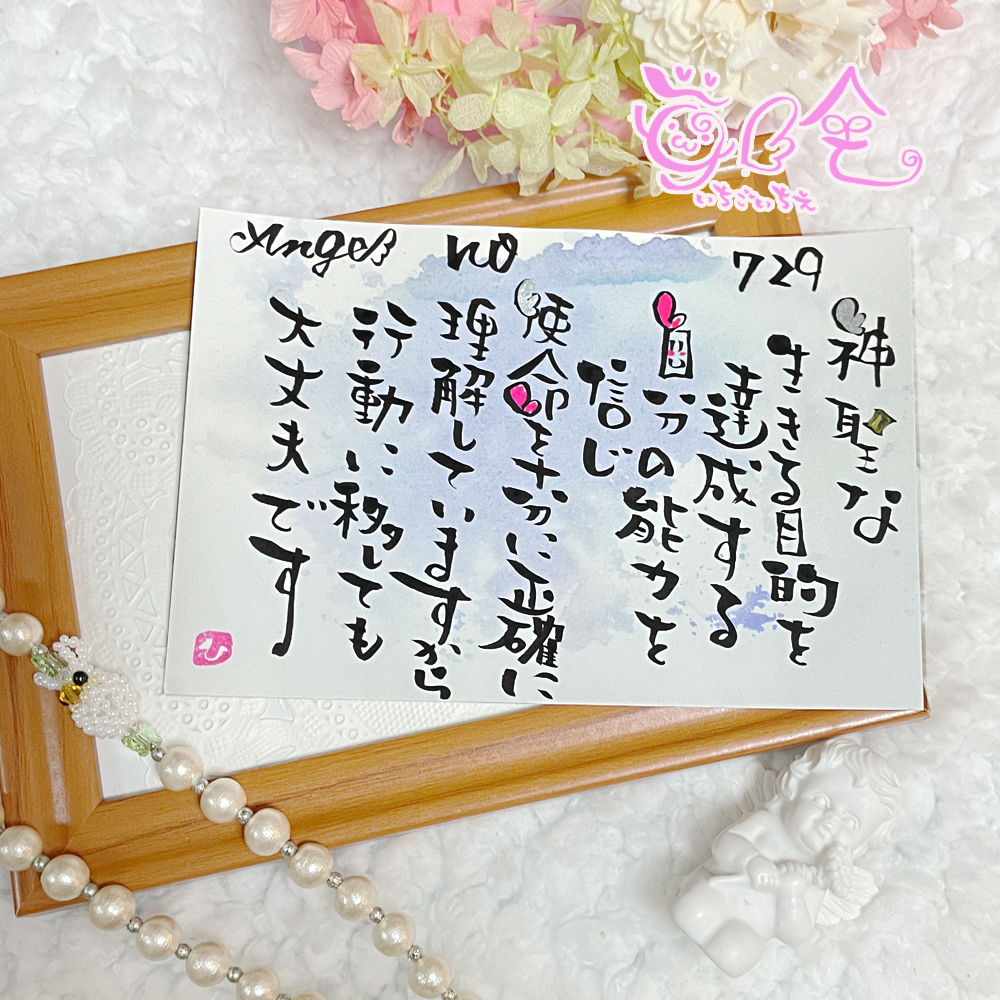 Angel no 729
神聖な
生きる目的を
達成する
自分の能力を
信じ
使命を十分に正確に
理解していますから
行動に移しても
大丈夫です
ひ
いちごいちえ